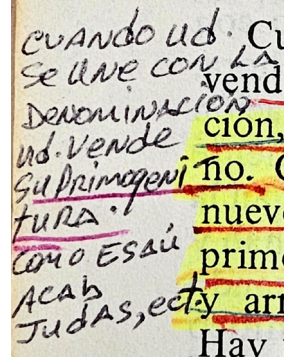 CUANDO Ud.
Se UNE CON LA
DENOMINACION
Ud. Vende
Su PRIMOGENI
TURA.
COMO ESAÚ
ACAB
JUdAS, ect
Cu
vend
ción,
no. C
nuevo
prime
y arr
Hay